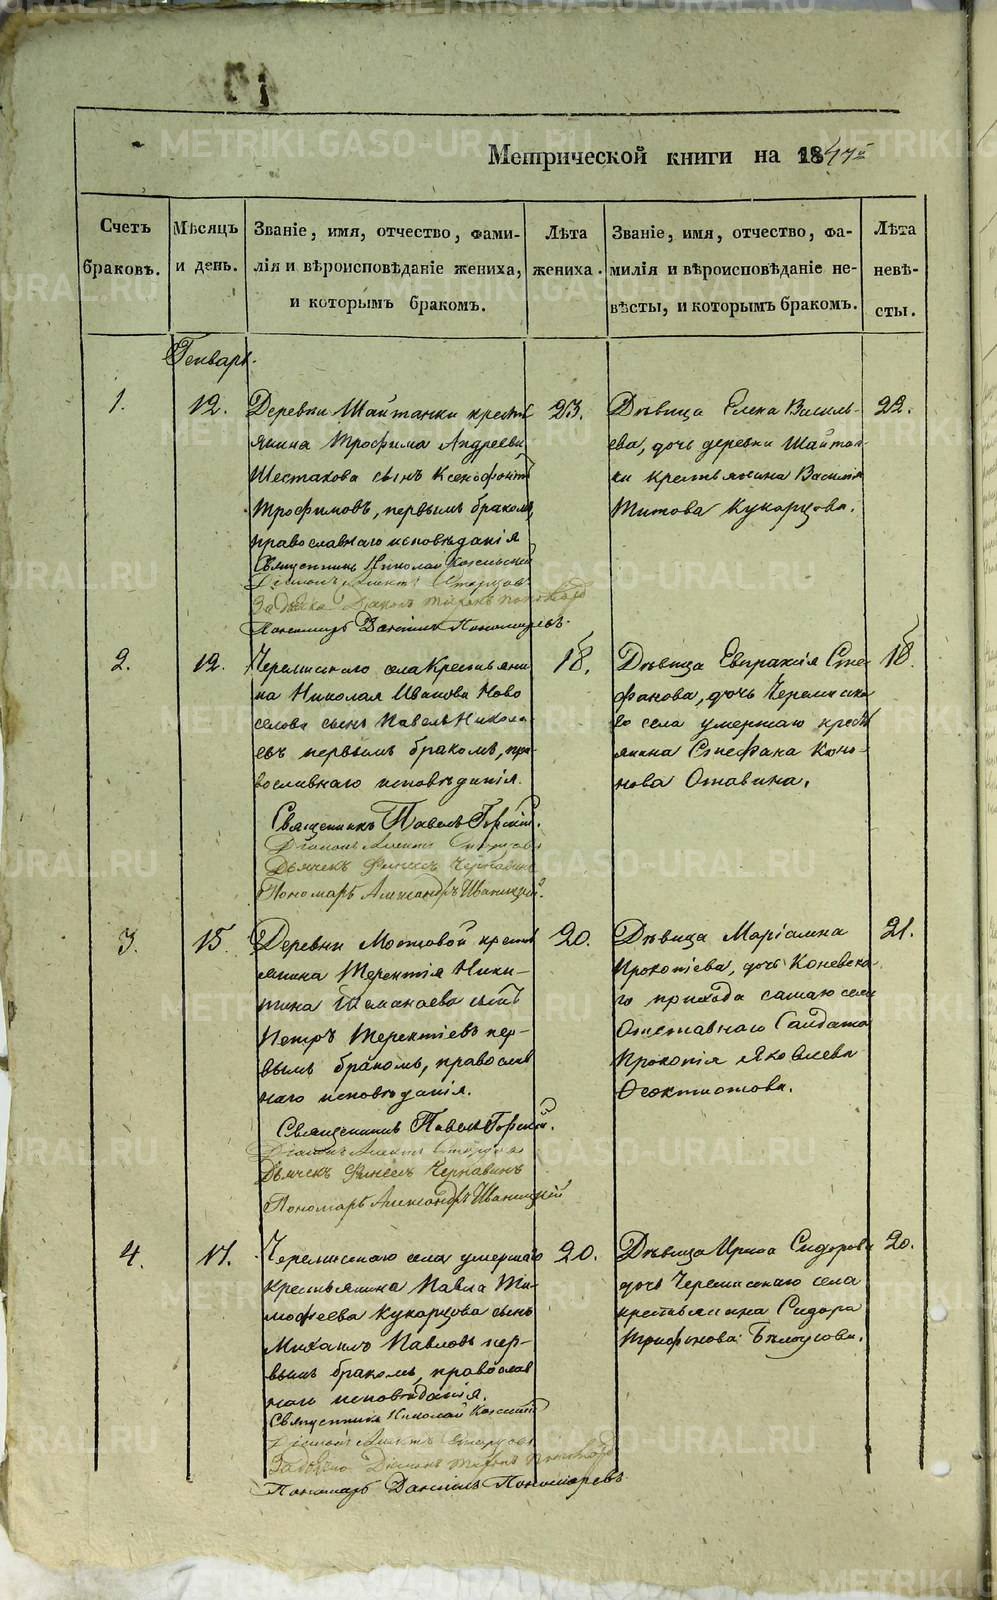 Метрической книги на 1847й
Счетъ браковъ.
Мѣсяцъ и день.
Званіе, имя, отчество, фами-
лія и вѣроисповѣданіе жениха,
и которымъ бракомъ.
Лѣта жениха.
Званіе, имя, отчество, фа-
милія и вѣроисповѣданіе не-
вѣсты, и которымъ бракомъ.
Лѣта невѣ-
сты.
Генварь.
1.
12.
Деревни Шайтанки кресть
янина Трофима Андреева
Шестакова сынъ Ксенофонтъ
Трофимовъ, первымъ бракомъ,
православнаго исповѣданія
Священникъ Николай
Діаконъ
За дьячка Діаконъ
Пономарь Даніилъ Пономаревъ.
23.
Дѣвица Елена Василь-
ева, дочь деревни Шайтан-
ки крестьянина Василія
Титова Кукарцова.
22.
2.
12.
Черемискаго села Крестьяни
на Николая Иванова Ново
селова сынъ Павелъ Никола
евъ первымъ бракомъ, пра-
вославнаго исповѣданія.
Священникъ Павелъ Горскій.
Діаконъ
Дьячекъ Финеесъ Чернавинъ
Пономарь Александръ Иваницкій.
18.
Дѣвица Евпраксія Сте
фанова, дочь Черемиска
го села умершаго кресть
янина Стефана Коно-
нова Отавина.
18.
3.
15.
Деревни Мостовой кресть
янина Терентія Ники-
тина сынъ
Петръ Терентіевъ пер-
вымъ бракомъ, православ
наго исповѣданія.
Священникъ Павелъ Горскій.
Діаконъ
Дьячекъ Финеесъ Чернавинъ
Пономарь Александръ Иваницкій
20.
Дѣвица Маріамна
Прокопіева, дочь Коневска-
го прихода самаго села
Отставнаго Салдата
Прокопія Яковлева
Феоктистова.
21.
4.
17.
Черемискаго села умершаго
крестьянина Павла Ти-
мофеева Кукарцова сынъ
Михаилъ Павловъ пер-
вымъ бракомъ, православ
наго исповѣданія.
Священникъ Николай
Діаконъ
За дьячка Діаконъ
Пономарь Даніилъ Пономаревъ
20.
Дѣвица Ирина Сидорова
дочь Черемискаго села
крестьянина Сидора
Трифонова Бѣлоусова.
20.